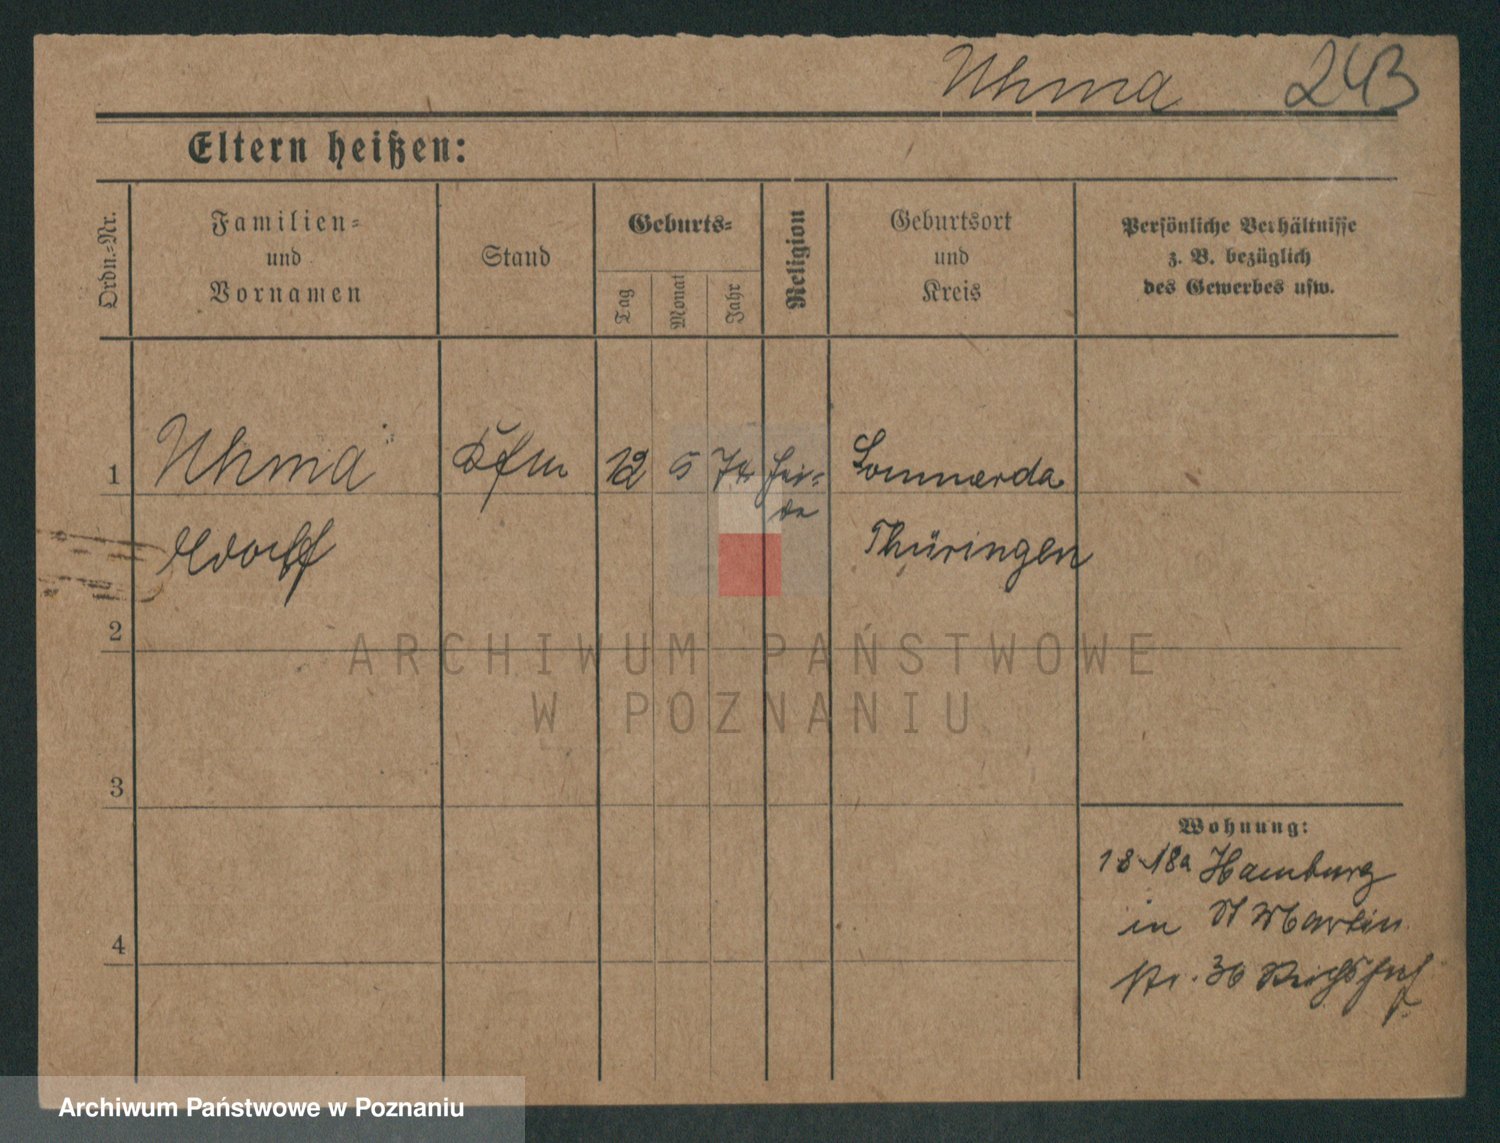 Uhma 243
Eltern heißen:
Ordn.-Nr.
Familien-
und
Vornamen
Stand
Geburts-
Tag
Monat
Jahr
Religion
Geburtsort
und
Kreis
Persönliche Verhältnisse
z. B. bezüglich
des Gewerbes usw.
1 Uhma Kfm 12 5 74 Sommerda
Adolf Thüringen
2
3
4
Wohnung:
18.18a Hamburg
in St Martin
str. 36 Reichshof
ARCHIWUM PAŃSTWOWE
W POZNANIU
Archiwum Państwowe w Poznaniu